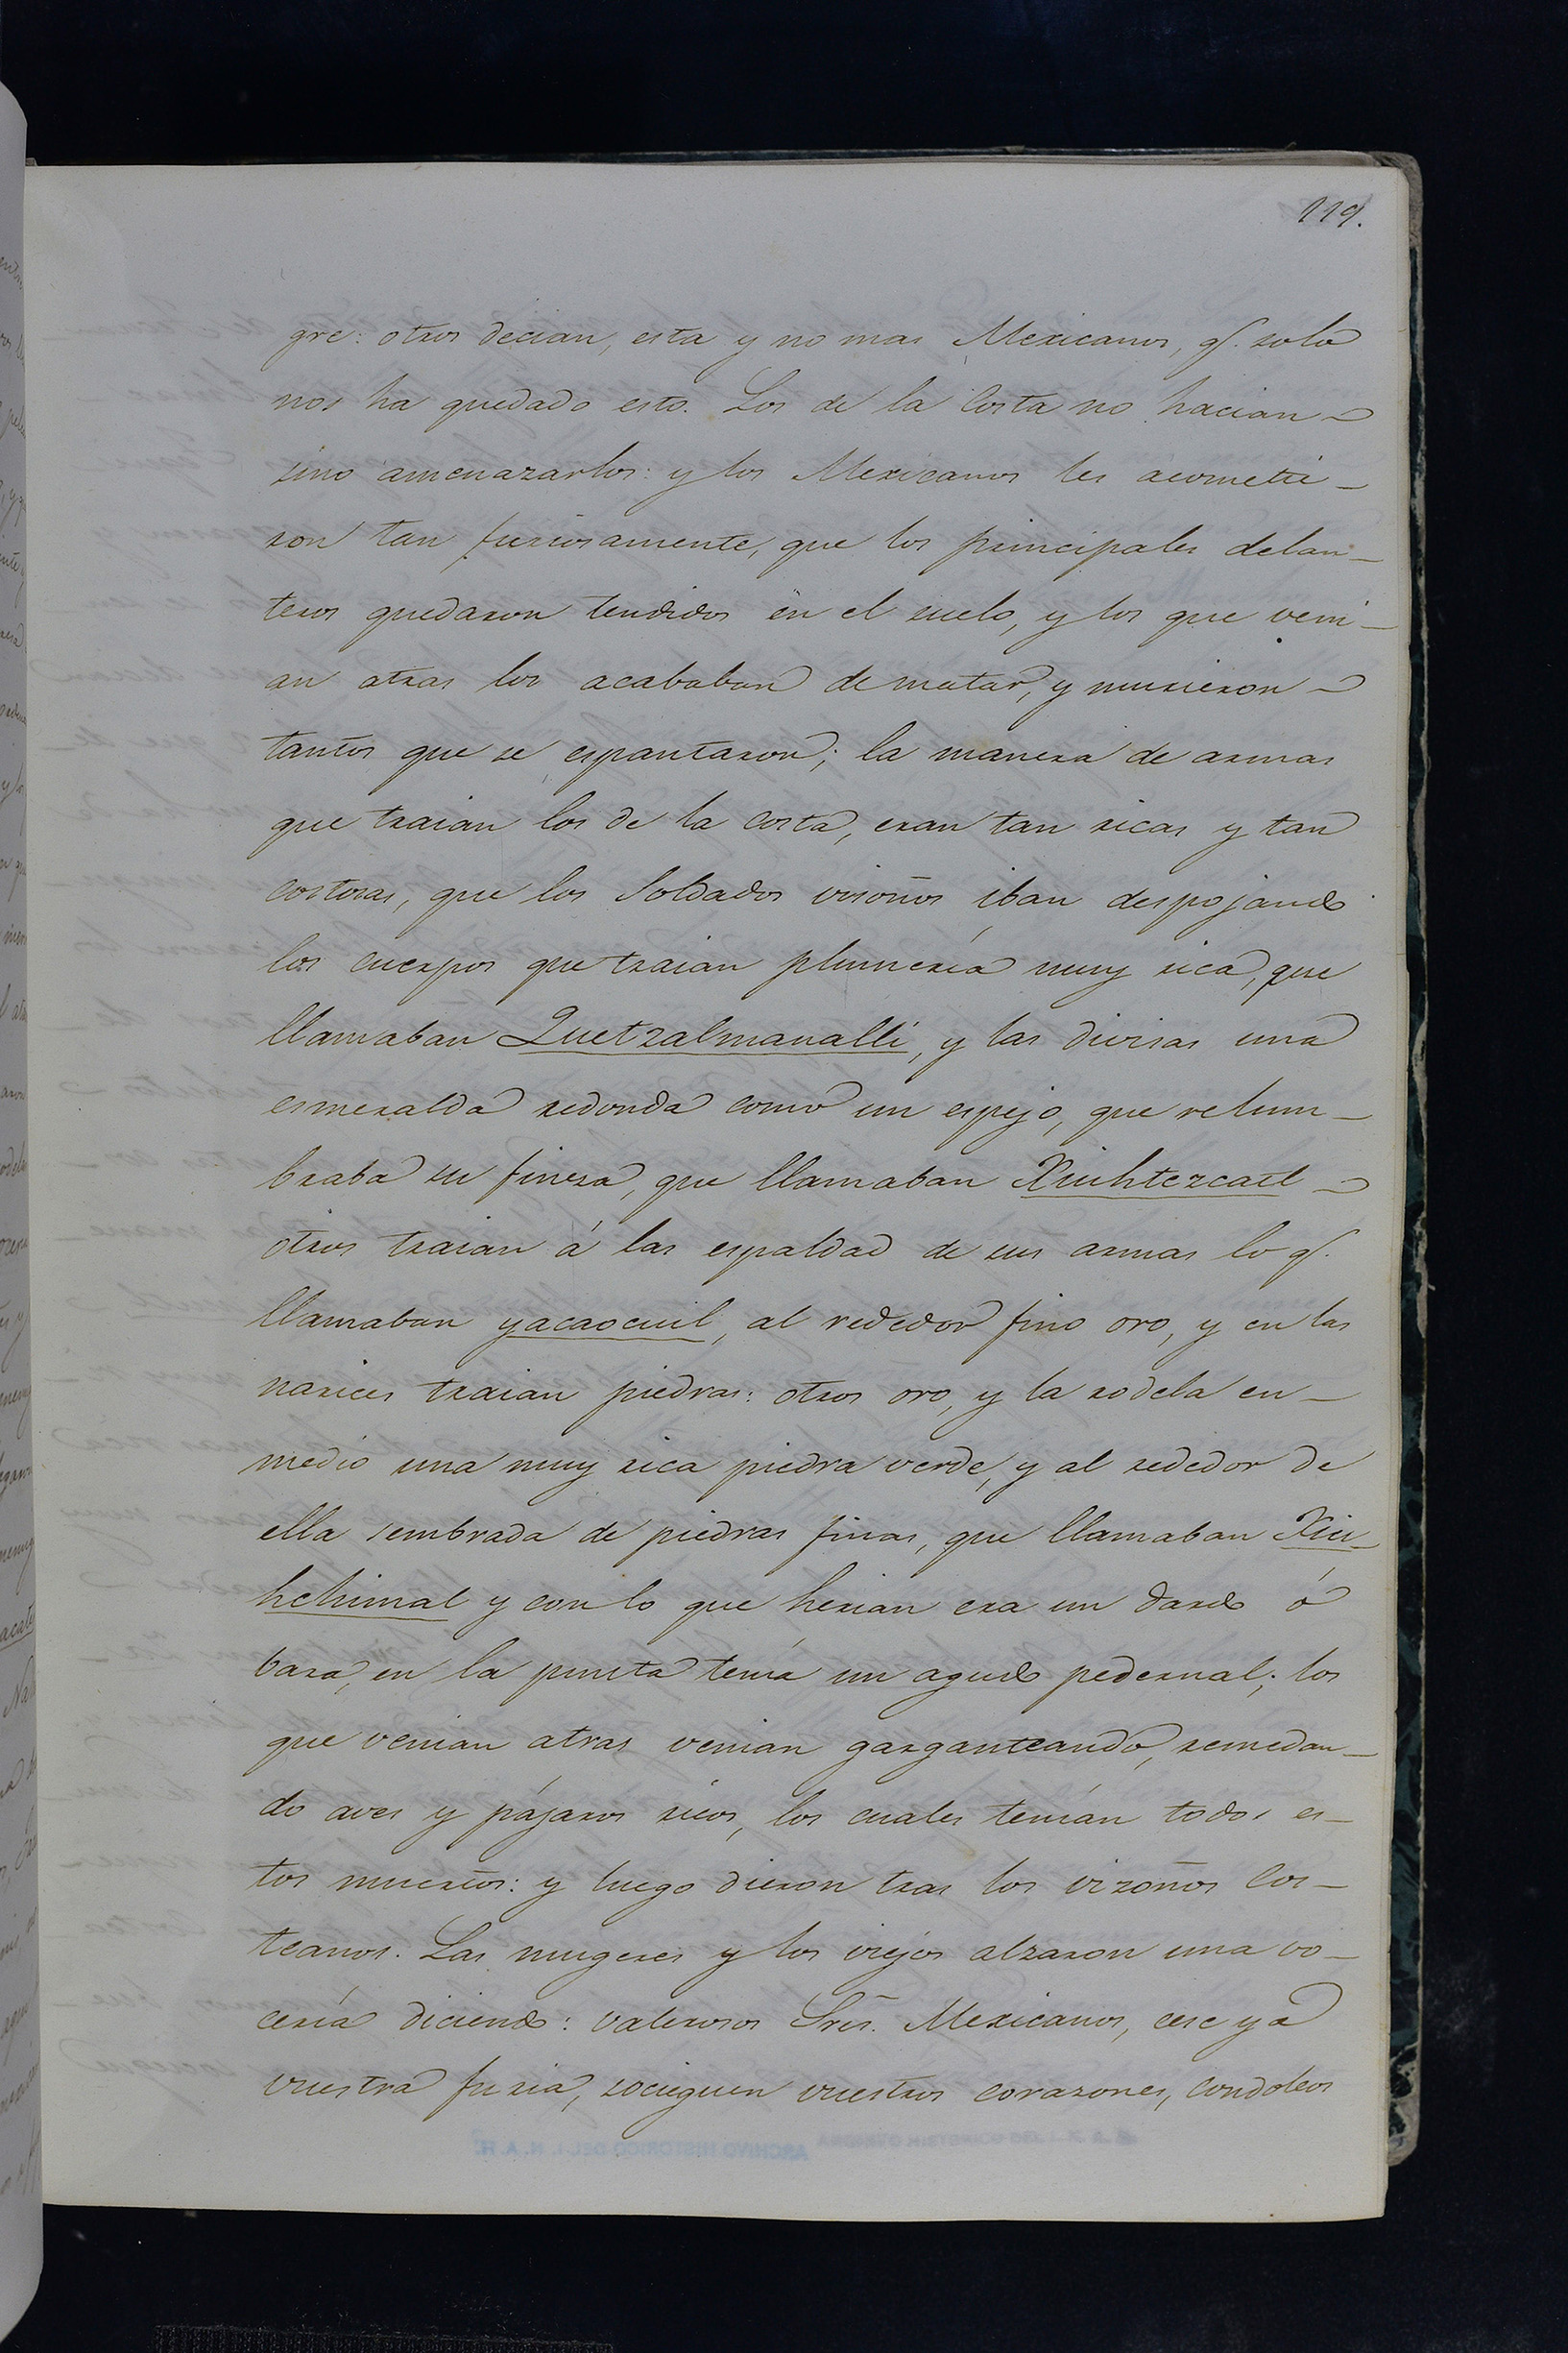 119.
gre: otros decian, esta y no mas Mexicanos, q.e solo
nos ha quedado esto. Los de la Costa no hacian
sino amenazarlos: y los Mexicanos les acometie-
ron tan furiosamente, que los principales delan-
teros quedaron tendidos en el suelo, y los que veni-
an atras los acababan de matar, y murieron
tantos que se espantaron; la manera de armas
que traian los de la costa, eran tan ricas y tan
costosas, que los Soldados visoños iban despojando
los cuerpos que traian plumería muy rica, que
llamaban Quetzalmanalli, y las divisas una
esmeralda redonda como un espejo, que relum-
braba su fineza, que llamaban Xiuhtezcatl
otros traian á las espaldad de sus armas lo q.e
llamaban yacaocuil, al rededor fino oro, y en las
narices traian piedras: otros oro, y la rodela en-
medio una muy rica piedra verde, y al rededor de
ella sembrada de piedras finas, que llamaban Xiu-
hchimal y con lo que herian era un dardo ó
bara, en la punta tenía un agudo pedernal; los
que venian atras venian garganteando, remedan-
do aves y pájaros ricos, los cuales tenían todos es-
tos muertos: y luego dieron tras los vizoños Cos-
teanos. Las mugeres y los viejos alzaron una vo-
cería diciendo: valerosos Sres. Mexicanos, cese ya
vuestra furia, socieguen vuestros corazones, condoleos
ARCHIVO HISTORICO DEL I. N. A. H.